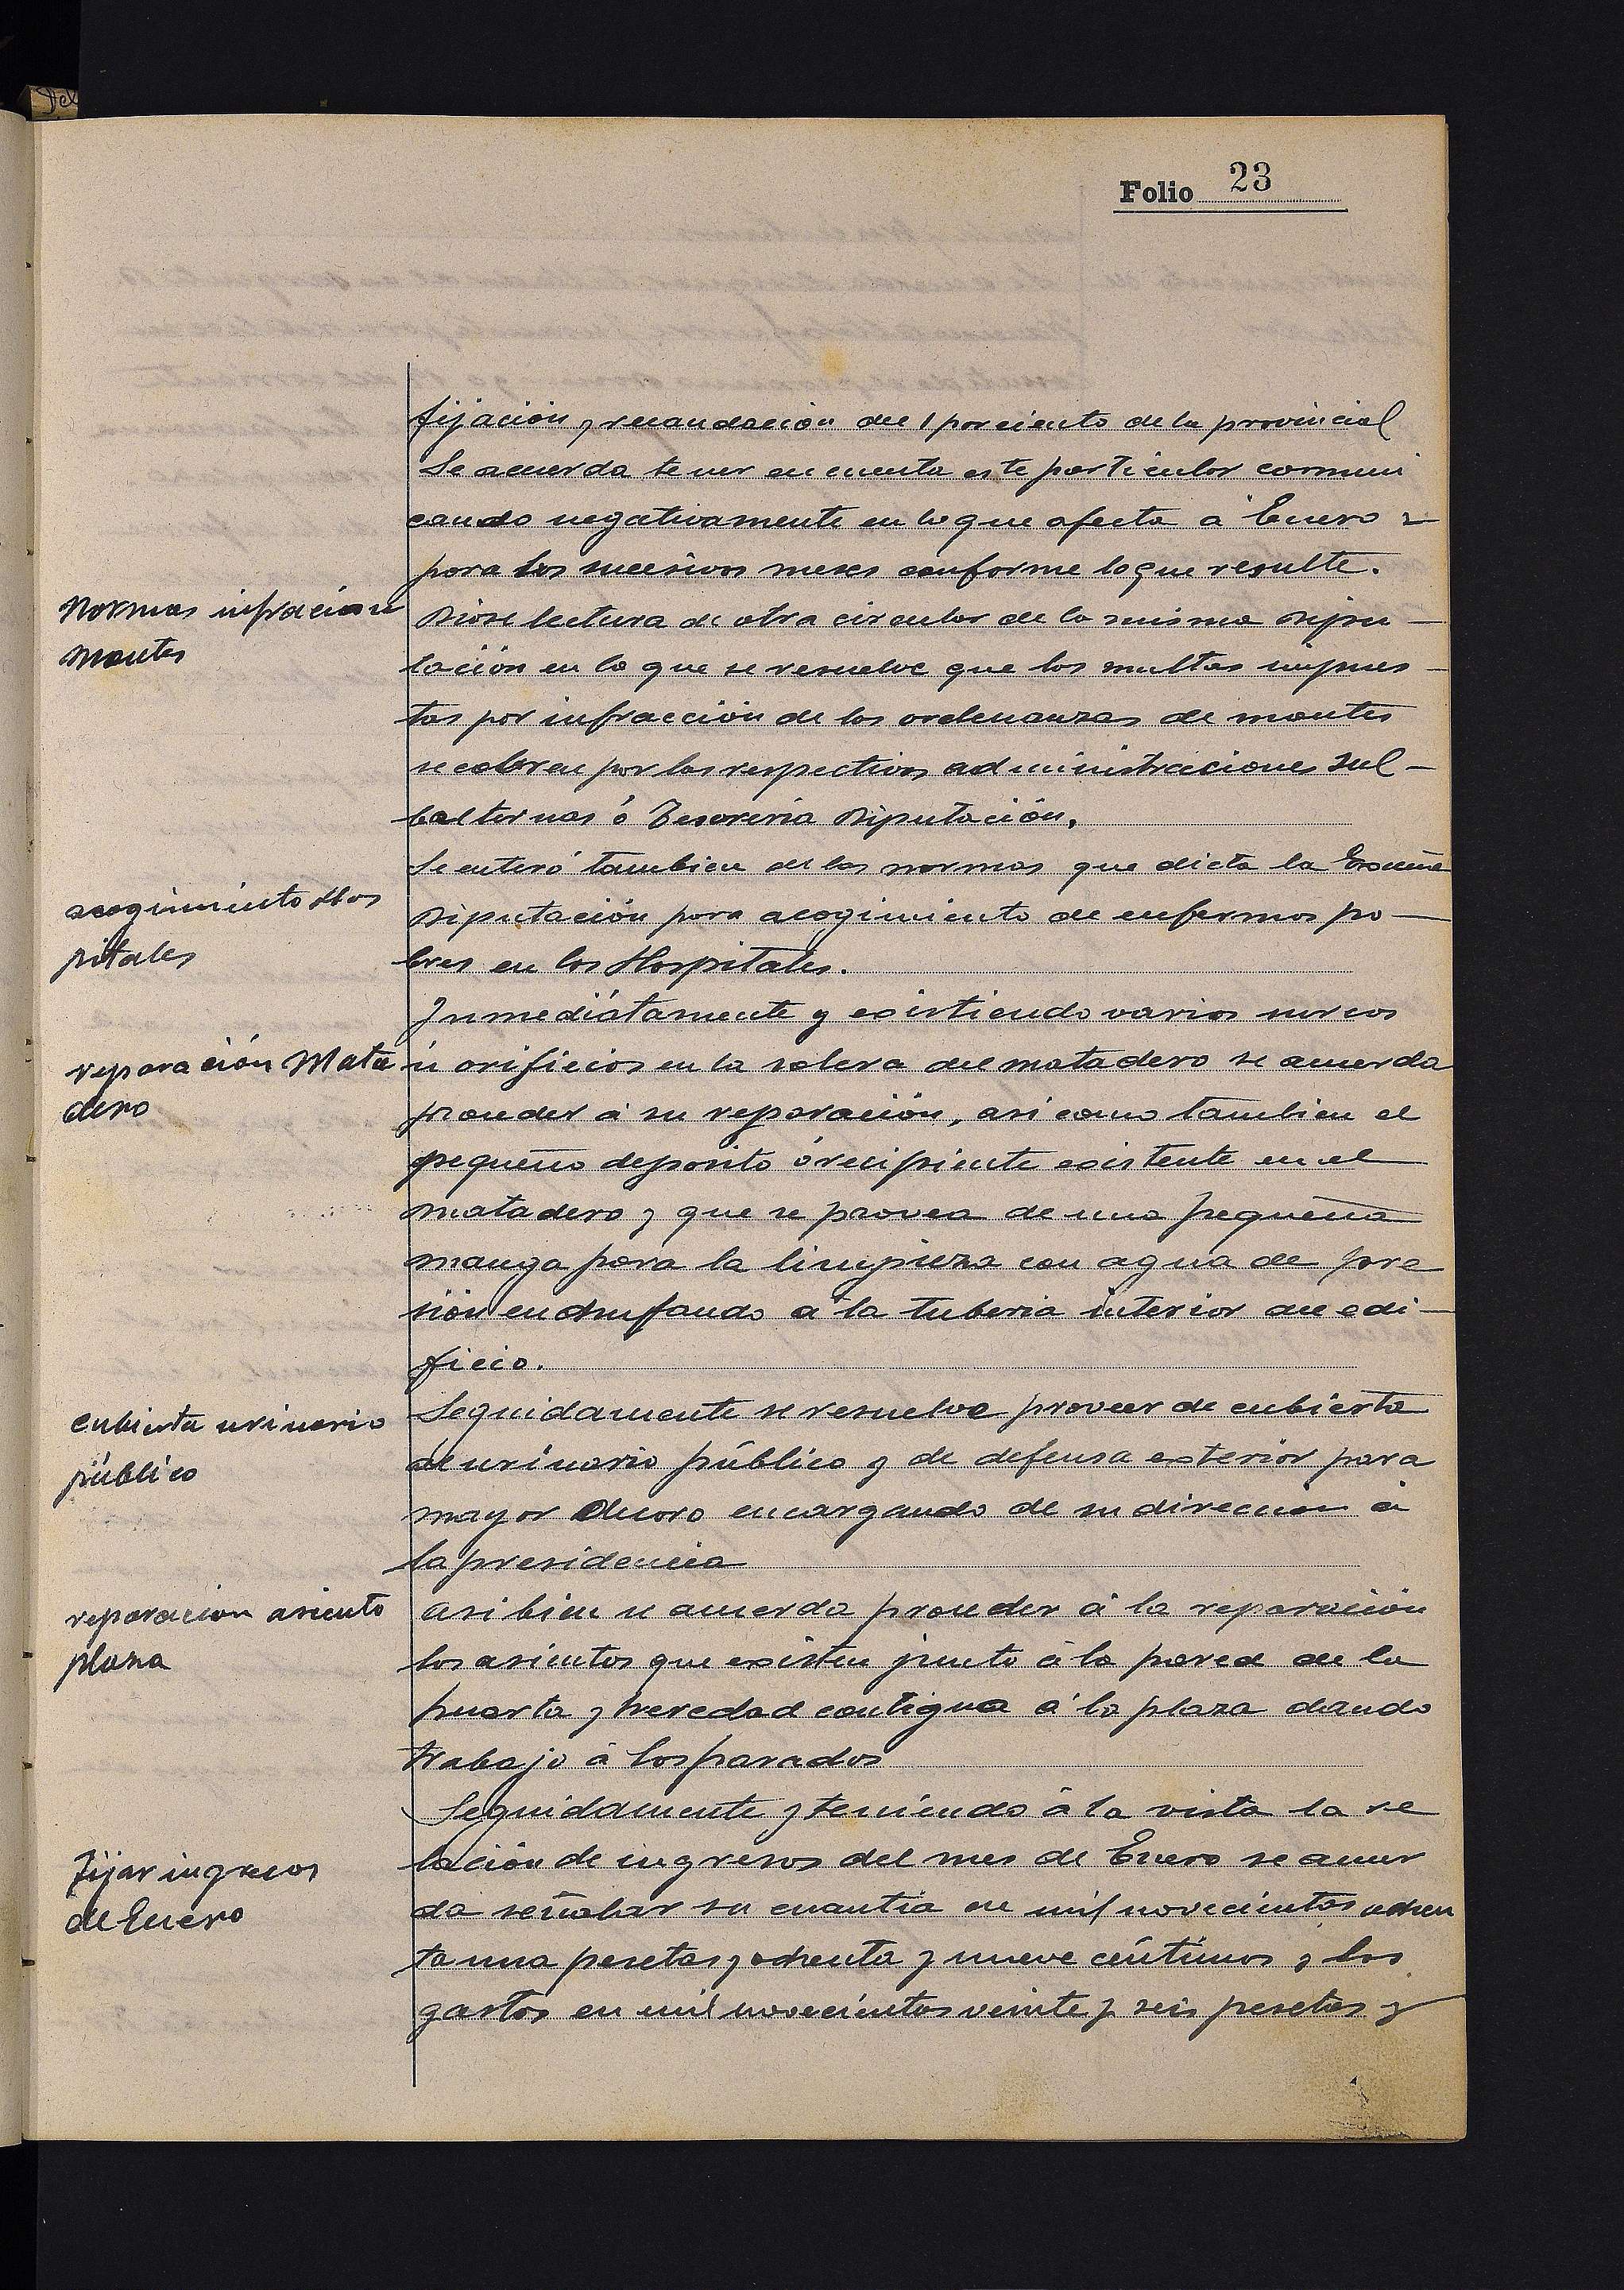 Folio 23
fijación y recaudación del 1 por ciento de la provincial
Se acuerda tener en cuenta este particular comuni
cando negativamente en lo que afecta á Enero y
para los sucesivos meses conforme lo que resulte.
Normas infracion
Montes
Diose lectura de otra circular de la misma Dipu-
tación en la que se resuelve que las multas impues-
tas por infracción de las ordenanzas de montes
se cobren por las respectivas administraciones sul-
balternas ó Tesoreria Diputación.
acogimiento Hos
pitales
Se enteró tambien de las normas que dicta la Excma
Diputación para acogimiento de enfermos po-
bres en los Hospitales.
Inmediátamente y existiendo varios
reparación Mata
dero
ú orificios en la solera del matadero se acuerda
proceder á su reparación, asi como tambien el
pequeño deposito ó recipiente existente en el
matadero y que se provea de una pequeña
manga para la limpieza con agua de pre
sión enchufando a la tuberia interior del edi-
ficio.
cubierta urinario
público
Seguidamente se resuelve proveer de cubierta
al urinario público y de defensa exterior para
mayor decoro encargando de su direccion á
la presidencia
reparacion asiento
plaza
Asi bien se acuerda proceder á la reparación
los asientos que existen junto á la pared de la
huerta y heredad contigua á la plaza dando
trabajo á los parados
Seguidamente y teniendo á la vista la re
Fijar ingresos
de Enero
lación de ingresos del mes de Enero se acuer
da señalar su cuantia en mil novecientas ochen
ta una pesetas y ochenta y nueve céntimos y los
gastos en mil novecientas veinte y seis pesetas y